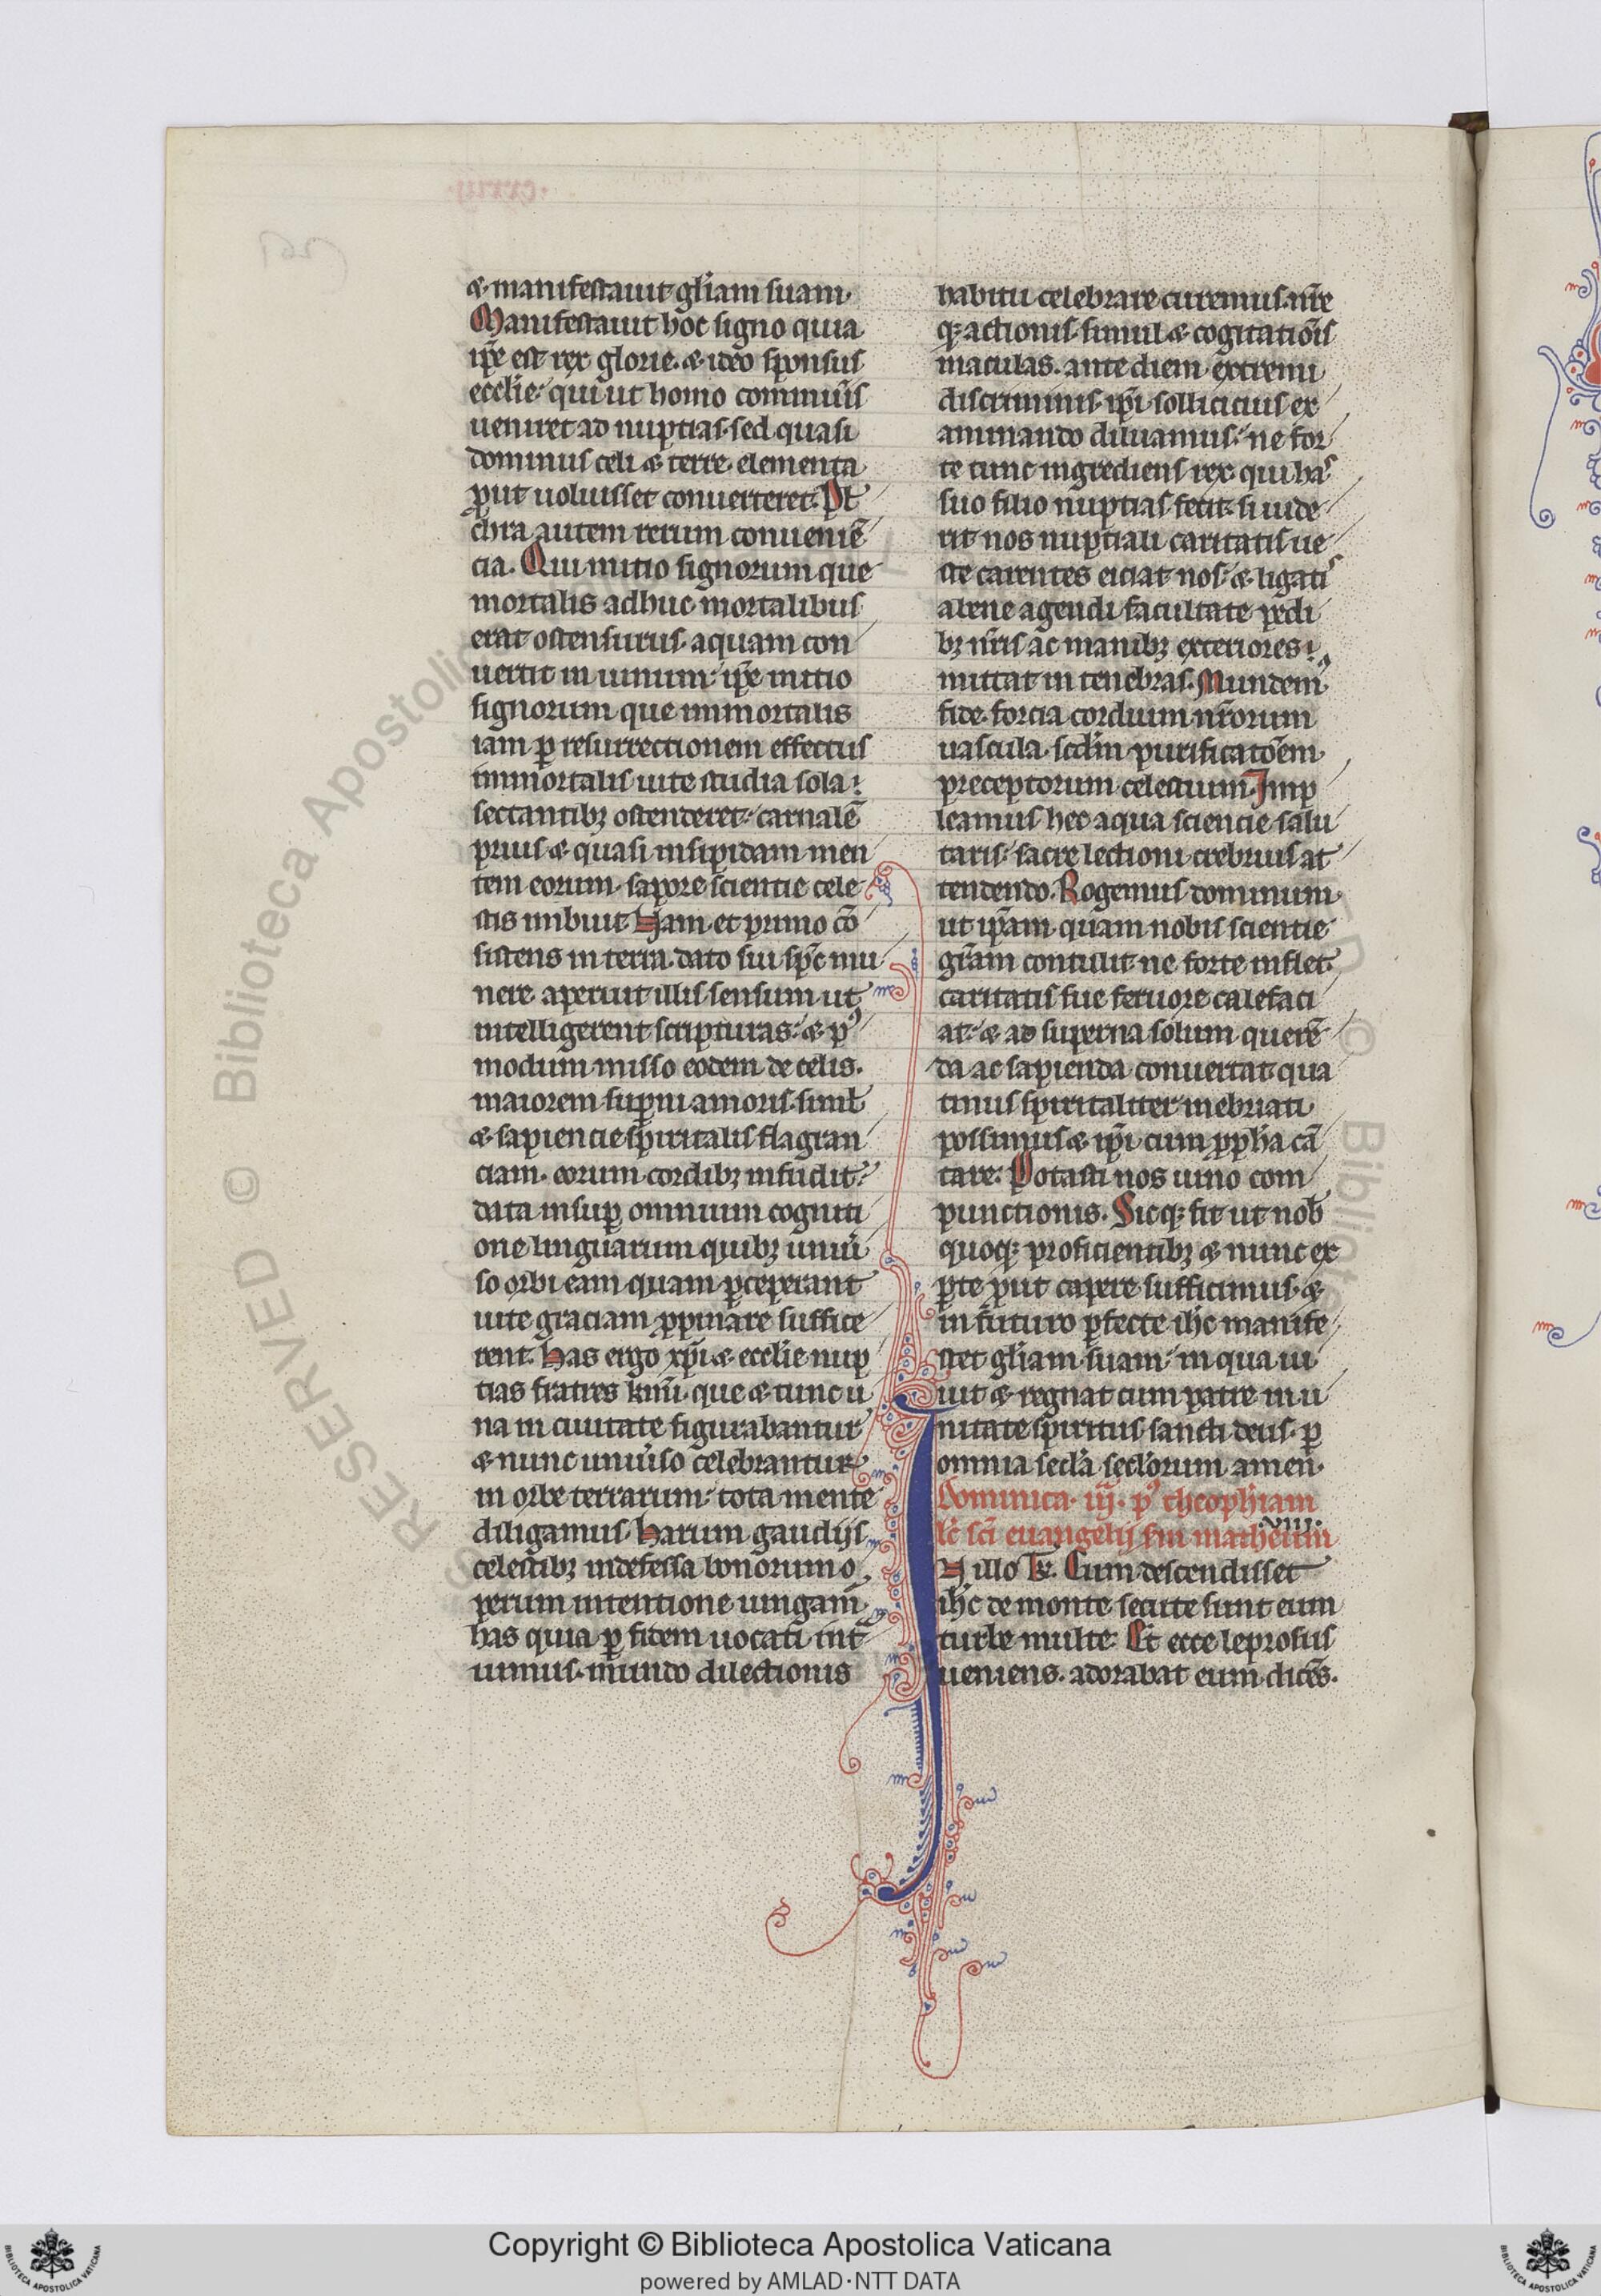 ⁊ manifestauit gl̃iam suam.
Manifestauit hoc signo quia
ip̃e est rex glorie. ⁊ ideo sponsus
ecclẽie. qui ut homo communĩs
ueniret ad nuptias. sed quasi
dominus celi ⁊ terre. elementa
ꝓut uoluisset conuerteret. Pl
chra autem rerum conueniẽ
cia. Qui initio signorum que
mortalis adhuc mortalibus
erat ostensurus. aquam con
uertit in uinum. ip̃e initio
signorum que immortalis
iam ꝑ resurrectionem effectus
immortalis uite studia sola
sectantibꝫ ostenderet. carnalẽ
prius ⁊ quasi insipidam men
tem eorum. sapore scientie cele
stis imbuit Nam et primo cõ
sistens in terra. dato sui sp̃c mu
nere aperuit illis sensum ut
intelligerent scripturas. ⁊ pꝰ
modum misso eodem de celis.
maiorem suꝑni amoris. siml̃
⁊ sapiencie spiritalis flagran
ciam. eorum cordibꝫ infudit.
data insuꝑ omnium cogniti
one linguarum quibꝫ uniũ
so orbi eam quam ꝑceperant
uite graciam ꝓpinare suffice
rent. Has ergo xp̃i ⁊ ecclẽie nup
tias fratres kmĩ. que ⁊ tunc u
na in ciuitate figurabantur
⁊ nunc uniũso celebrantur
in orbe terrarum. tota mente
diligamus. Harum gaudijs
celestibꝫ indefessa bonorum o
perum intentione iungam̃.
has quia ꝑ fidem uocati int̃
uimus. mundo dilectionis
habitu celebrare curemus. nr̃e
qꝫ actionis. simul ⁊ cogitatiõis
maculas. ante diem extremi
discriminis. ip̃i sollicicius ex
aminando diluamus. ne for
te tunc ingrediens rex qui has
suo filio nuptias fecit. si uide
rit nos nuptiali caritatis ue
ste carentes eiciat nos. ⁊ ligatis
a bene agendi facultate pedi
bꝫ nr̃is ac manibꝫ exteriores
mittat in tenebras. Mundemꝰ
fide. forcia cordium nr̃orum
uascula. scdm̃ purificatõem
preceptorum celestium. Imp
leamus hec aqua sciencie salu
taris. sacre lectioni crebrius at
tendendo. Rogemus dominum
ut ip̃am quam nobis scientie
gr̃am contulit. ne forte inflet.
caritatis sue feruore calefaci
at. ⁊ ad superna solum querẽ
da ac sapienda conuertat. qua
tinus spiritaliter inebriati
possimus ⁊ ip̃i cum ꝓph̃a cã
tare. Potasti nos uino com
punctionis. Sicqꝫ fit ut nob̃
quoqꝫ proficientibꝫ ⁊ nunc ex
ꝑte ꝓut capere sufficimus. ⁊
in futuro ꝑfecte ih̃c manife
stet gl̃iam suam. in qua ui
uit ⁊ regnat cum patre in u
nitate spiritus sancti deus. ꝑ
omnia secl̃a secl̃orum amen.
Dominica. iij. pꝰ theoph̃iam
lc̃ sc̃i euangelij sm̃ matheum
.viiii.
IN illo t̃. Cum descendisset
ih̃c de monte secute sunt eum
turbe multe. Et ecce leprosus
ueniens. adorabat eum. dicẽs.
RESERVED © Biblioteca Apostolic
Copyright © Biblioteca Apostolica Vaticana
powered by AMLAD·NTT DATA